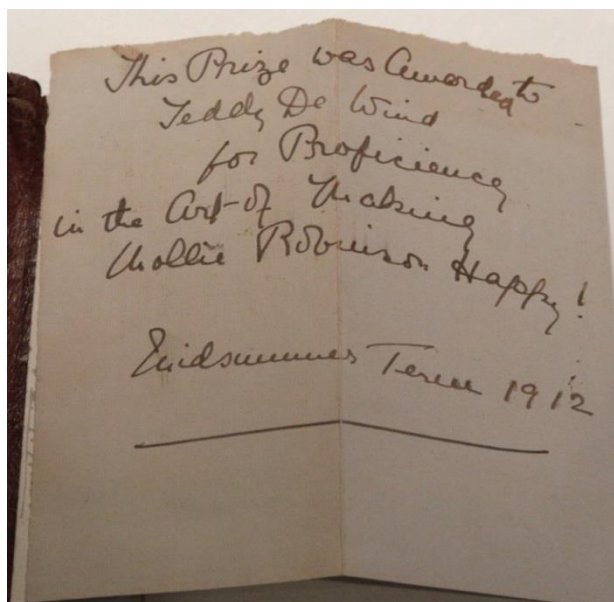 This Prize was Awarded to
Teddy De Wind
for Proficiency
in the Art of Making
Mollie Robinson Happy!
Midsummer Term 1912